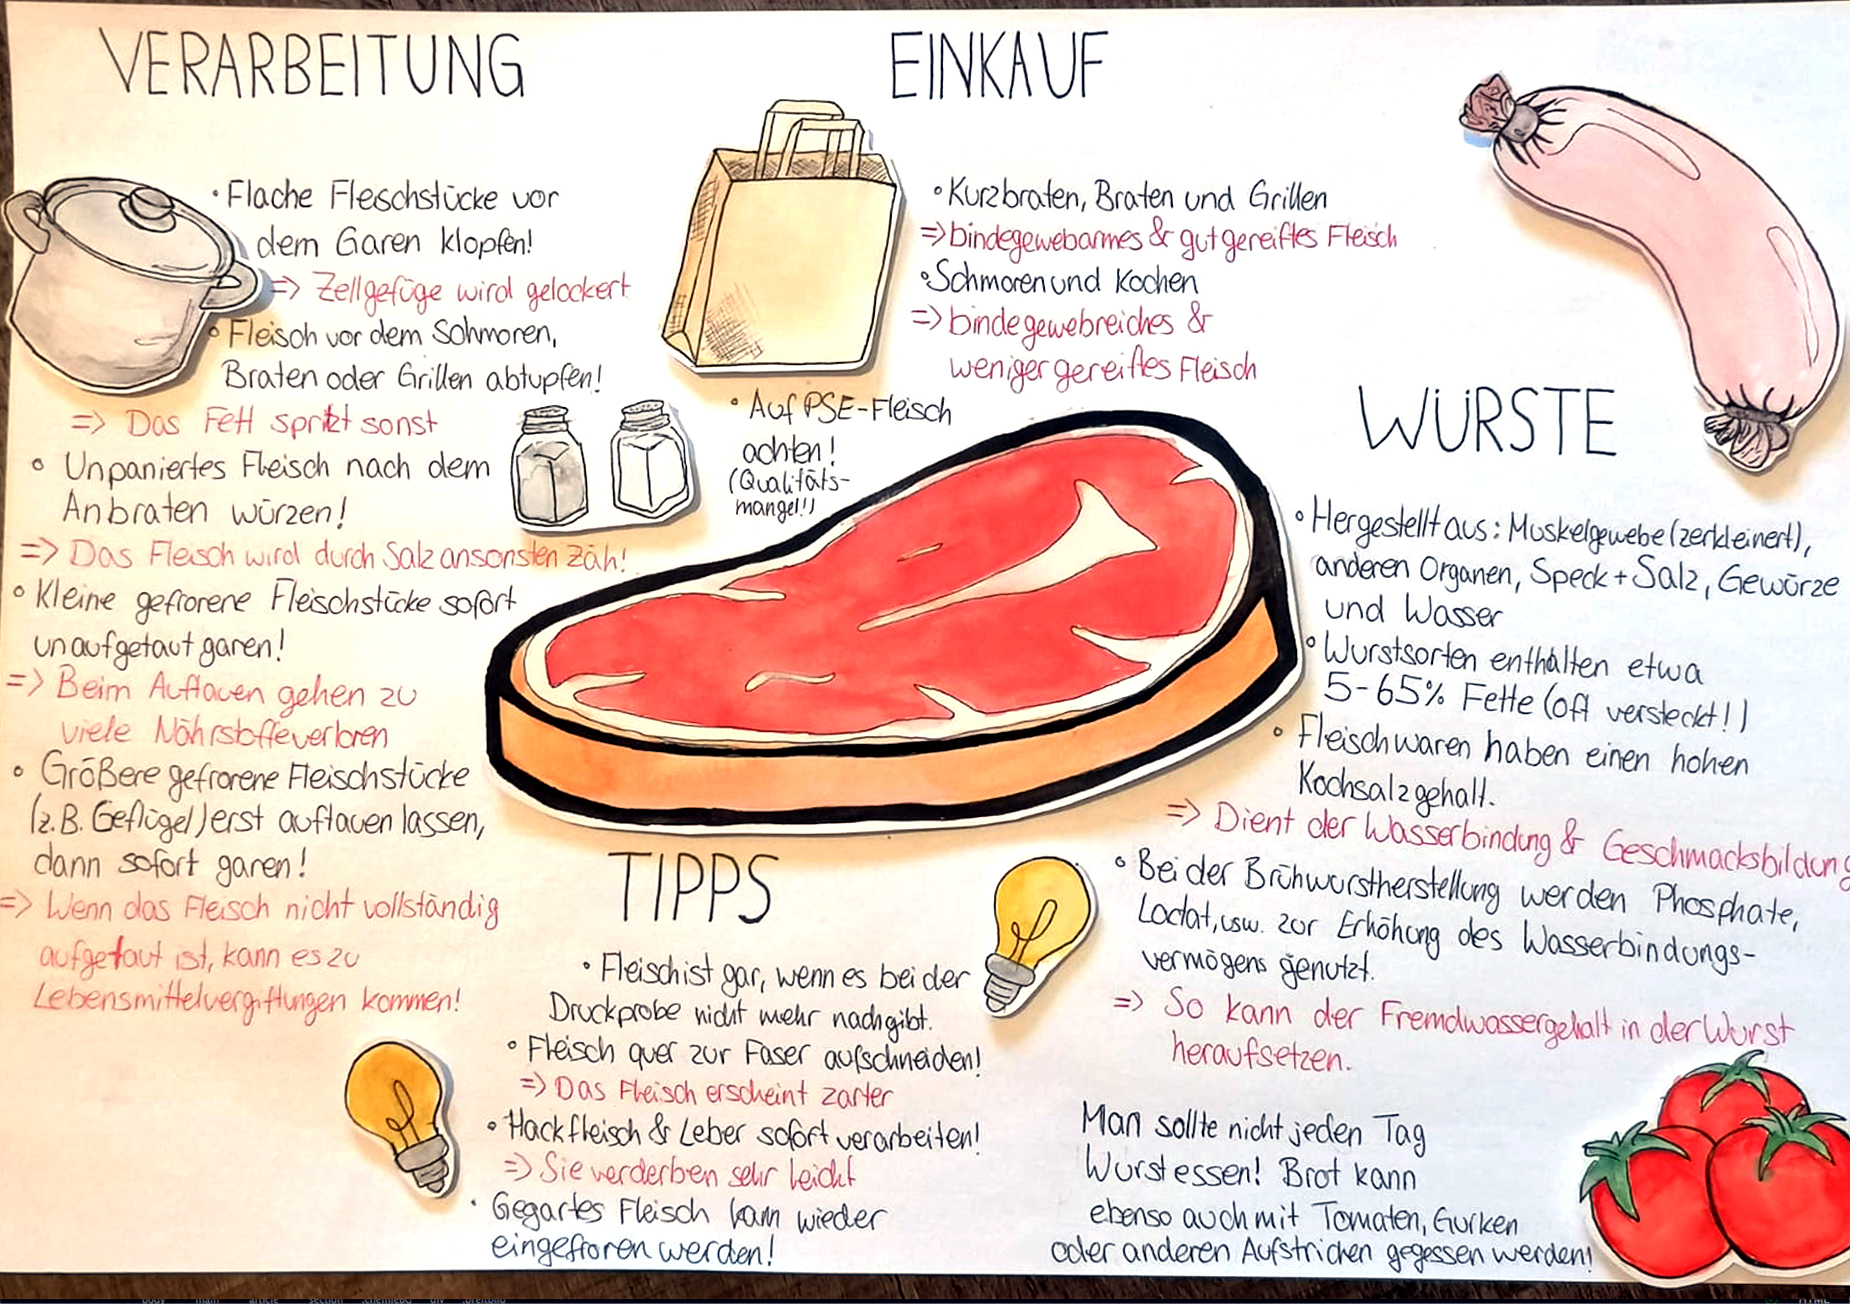 VERARBEITUNG
• Flache Fleischstücke vor
dem Garen klopfen!
=> Zellgefüge wird gelockert
• Fleisch vor dem Schmoren,
Braten oder Grillen abtupfen!
=> Das Fett spritzt sonst
• Unpaniertes Fleisch nach dem
Anbraten würzen!
=> Das Fleisch wird durch Salz ansonsten zäh!
• Kleine gefrorene Fleischstücke sofort
unaufgetaut garen!
=> Beim Auftauen gehen zu
viele Nährstoffe verloren
• Größere gefrorene Fleischstücke
(z.B. Geflügel) erst auftauen lassen,
dann sofort garen!
=> Wenn das Fleisch nicht vollständig
aufgetaut ist, kann es zu
Lebensmittelvergiftungen kommen!
EINKAUF
• Kurzbraten, Braten und Grillen
=> bindegewebarmes & gut gereiftes Fleisch
• Schmoren und Kochen
=> bindegewebreiches &
weniger gereiftes Fleisch
• Auf PSE-Fleisch
achten!
(Qualitäts-
mangel!!)
WÜRSTE
• Hergestellt aus: Muskelgewebe (zerkleinert),
anderen Organen, Speck + Salz, Gewürze
und Wasser
• Wurstsorten enthalten etwa
5-65% Fette (oft versteckt!!)
• Fleischwaren haben einen hohen
Kochsalzgehalt.
=> Dient der Wasserbindung & Geschmacksbildung
• Bei der Brühwurstherstellung werden Phosphate,
Lactat, usw. zur Erhöhung des Wasserbindungs-
vermögens genutzt.
=> So kann der Fremdwassergehalt in der Wurst
heraufsetzen.
Man sollte nicht jeden Tag
Wurst essen! Brot kann
ebenso auch mit Tomaten, Gurken
oder anderen Aufstrichen gegessen werden!
TIPPS
• Fleisch ist gar, wenn es bei der
Druckprobe nicht mehr nachgibt.
• Fleisch quer zur Faser aufschneiden!
=> Das Fleisch erscheint zarter
• Hackfleisch & Leber sofort verarbeiten!
=> Sie verderben sehr leicht
• Gegartes Fleisch kann wieder
eingefroren werden!